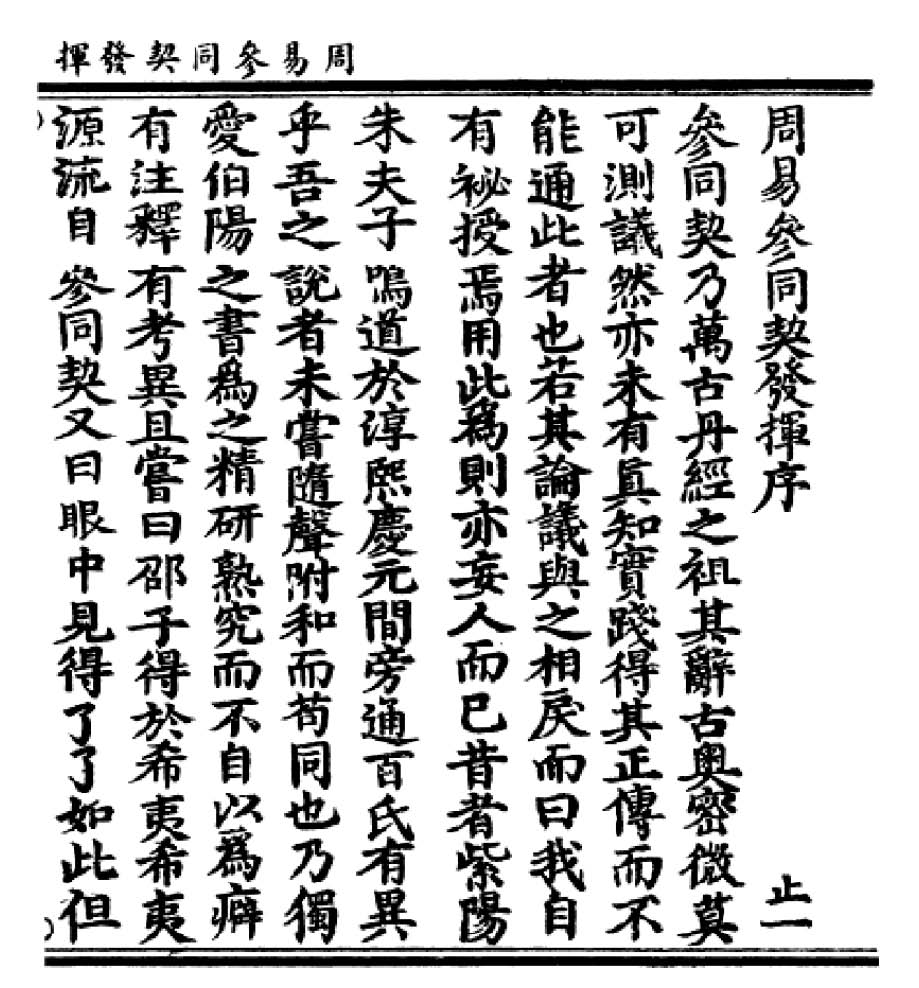 周易參同契發揮
周易參同契發揮序　止一
參同契乃萬古丹經之祖其辭古奧密微莫
可測議然亦未有眞知實踐得其正傳而不
能通此者也若其論議與之相戾而曰我自
有祕授焉用此爲則亦妄人而已昔者紫陽
朱夫子鳴道於淳熙慶元間旁通百氏有異
乎吾之說者未嘗隨聲附和而苟同也乃獨
愛伯陽之書爲之精研熟究而不自以爲癖
有注釋有考異且嘗曰邵子得於希夷希夷
源流自參同契又曰眼中見得了了如此但